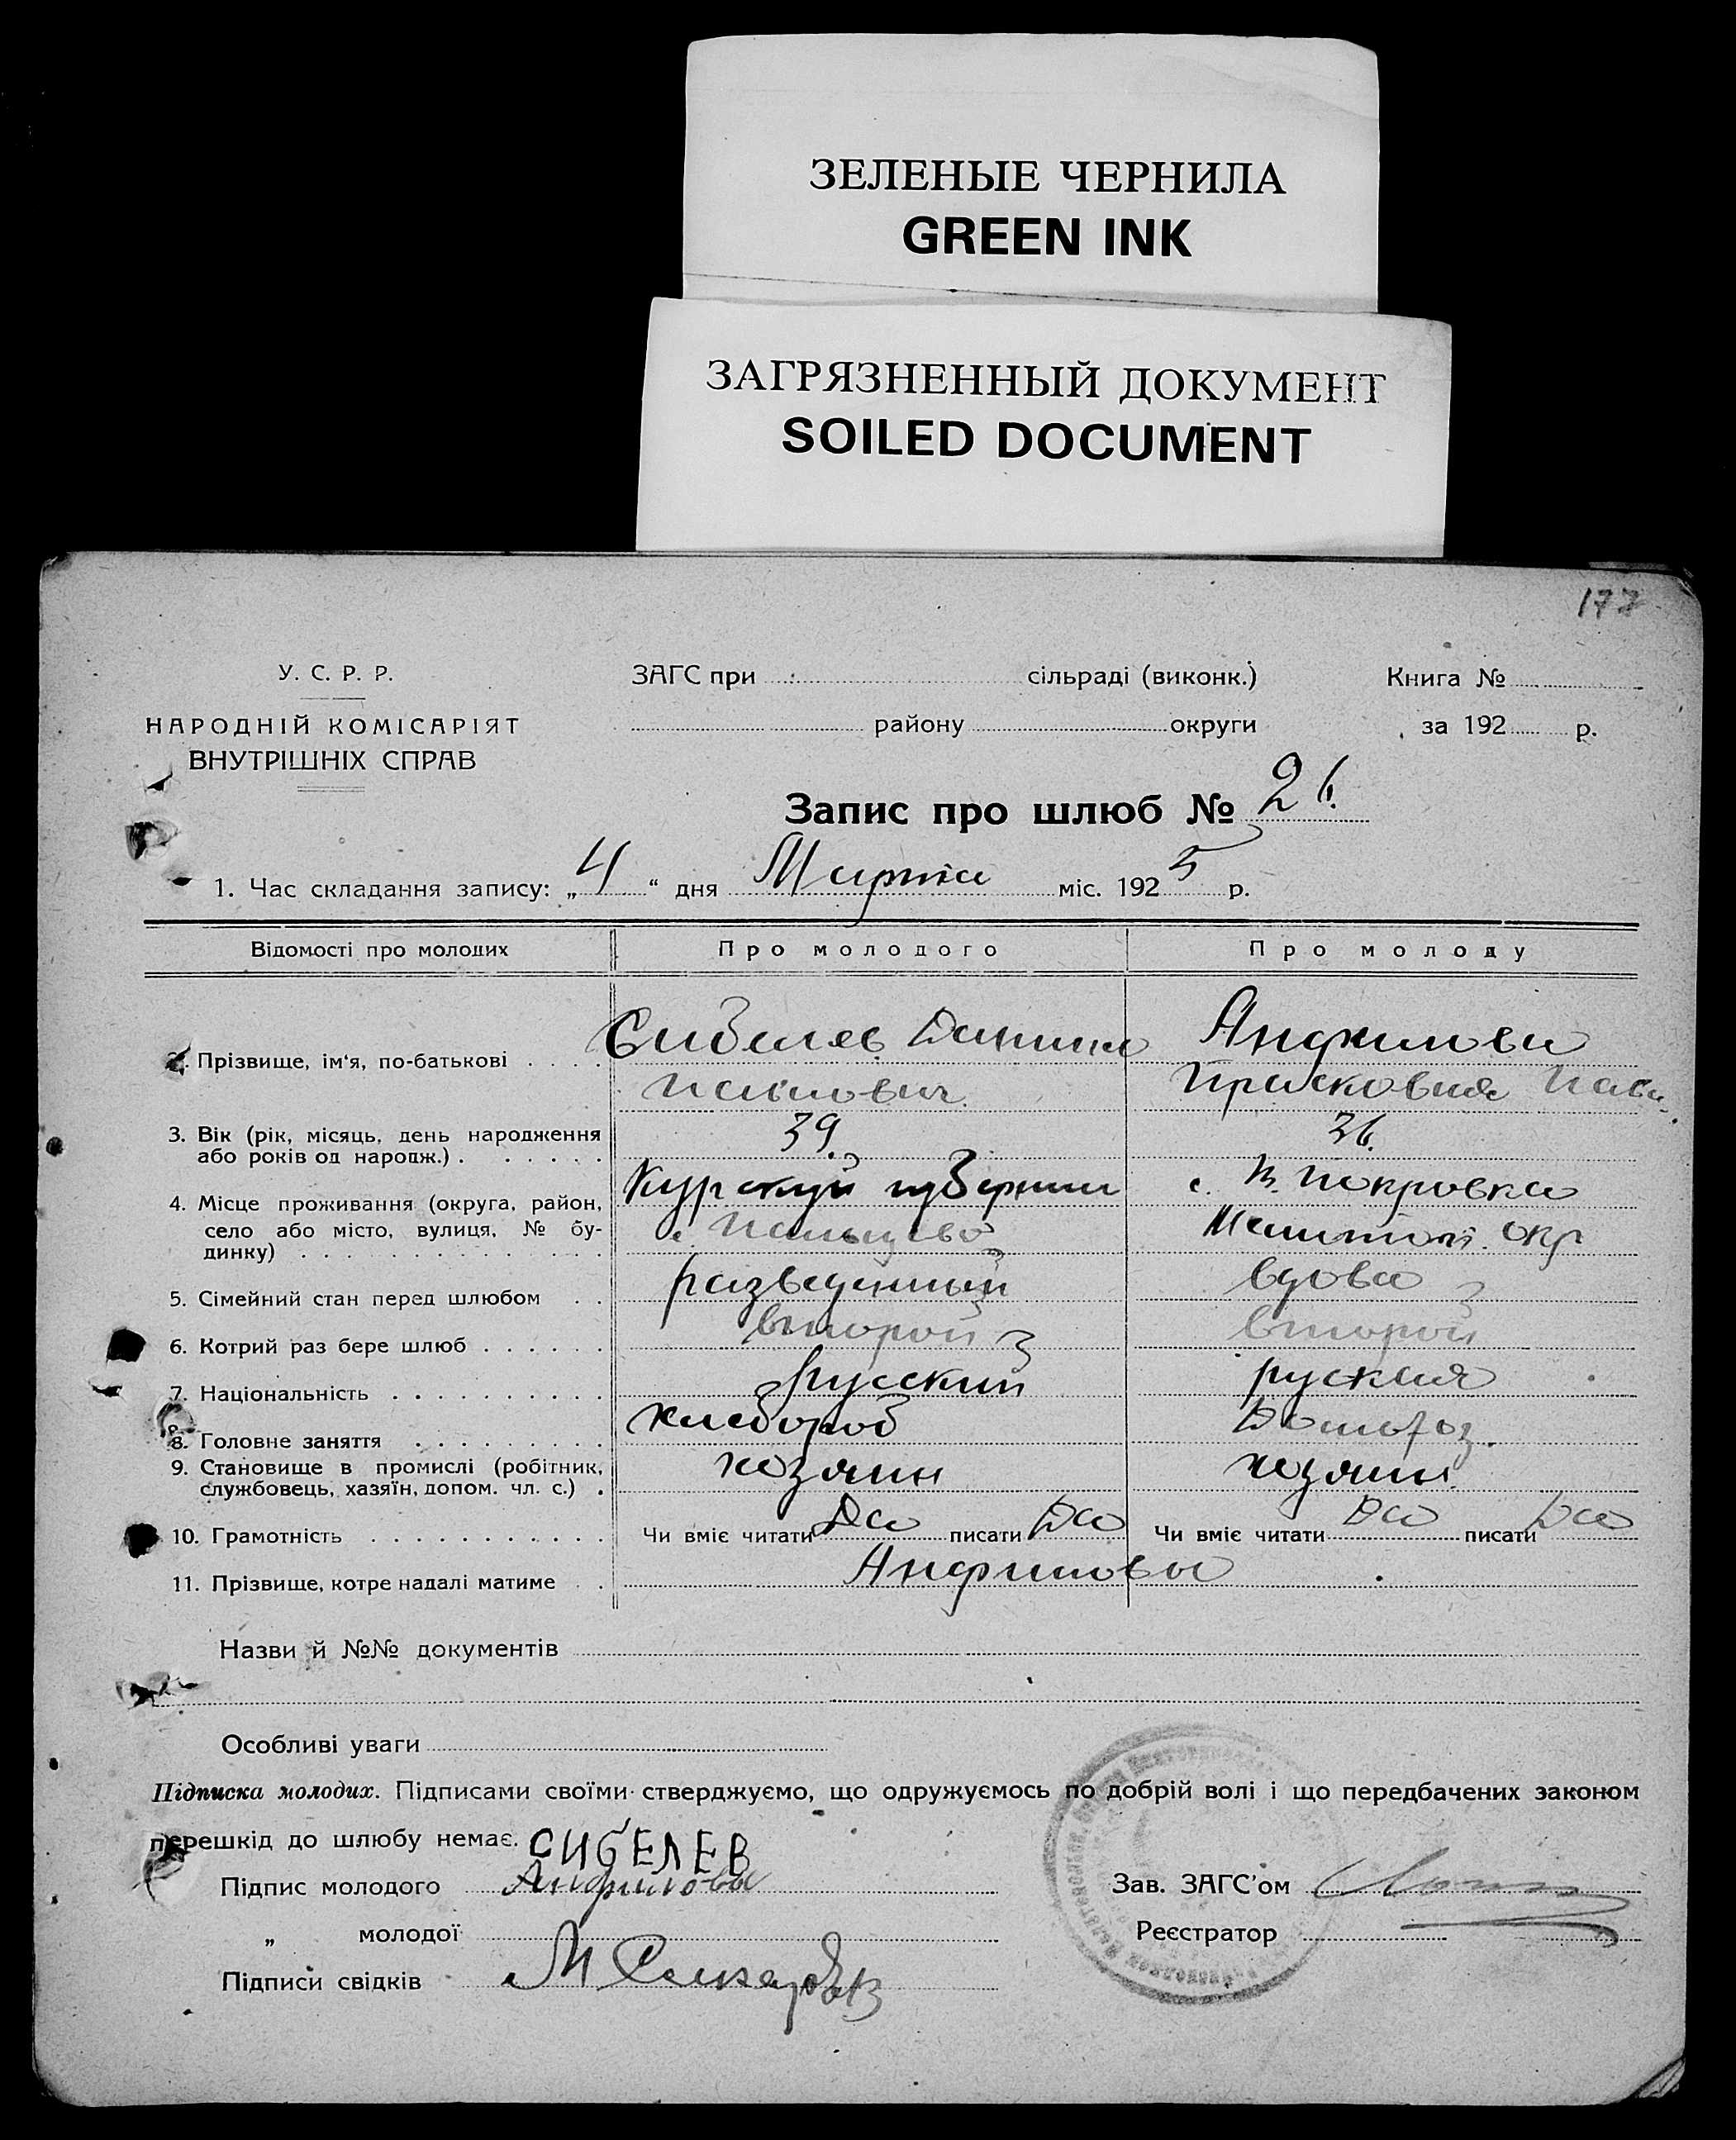 ЗЕЛЕНЫЕ ЧЕРНИЛА
GREEN INK
ЗАГРЯЗНЕННЫЙ ДОКУМЕНТ
SOILED DOCUMENT
177
У. С. Р. Р.
НАРОДНІЙ КОМІСАРІЯТ
ВНУТРІШНІХ СПРАВ
ЗАГС при сільраді (виконк.)
району округи
Книга №
за 192 р.
Запис про шлюб № 26.
1. Час складання запису: „4“ дня Марта міс. 1925 р.
Відомості про молодих Про молодого Про молоду
2. Прізвище, ім'я, по-батькові Сибелев Даниил Анфилова
Прасковия
3. Вік (рік, місяць, день народження або років од народж.) 39. 36.
4. Місце проживання (округа, район, село або місто, вулиця, № будинку) Курской губернии с. Покровка
с. окр
5. Сімейний стан перед шлюбом разведенный вдова
6. Котрий раз бере шлюб второй второй
7. Національність русский руская
8. Головне заняття хлебороб Домохоз.
9. Становище в промислі (робітник, службовець, хазяїн, допом. чл. с.) хозяин хозяин
10. Грамотність Чи вміє читати Да писати Да Чи вміє читати Да писати Да
11. Прізвище, котре надалі матиме Анфиловы
Назви й №№ документів
Особливі уваги
Підписка молодих. Підписами своїми стверджуємо, що одружуємось по добрій волі і що передбачених законом
перешкід до шлюбу немає. СИБЕЛЕВ
Підпис молодого Анфилова Зав. ЗАГС'ом
„ молодої Реєстратор
Підписи свідків